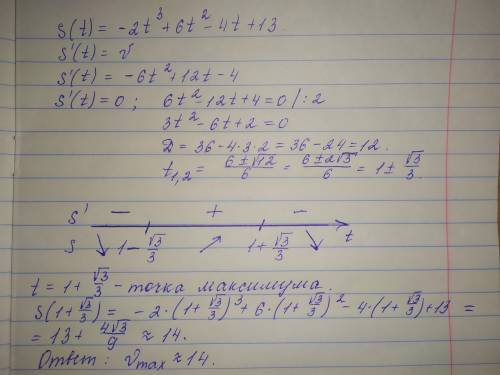 S(t) = -2t³+6t²-4t+13.
S'(t) = v
S'(t) = -6t²+12t-4
S'(t) = 0 ; 6t²-12t+4=0 /:2
3t²-6t+2=0
D = 36-4·3·2 = 36-24 = 12.
t₁,₂ = (6±√12)/6 = (6±2√3)/6 = 1± √3/3
S' − + −
S ↘ 1-√3/3 ↗ 1+√3/3 ↘ t
t = 1+ √3/3 - точка максимума.
S(1+√3/3) = -2·(1+√3/3)³+6·(1+√3/3)²-4·(1+√3/3)+13 =
= 13+ 4√3/9 ≈ 14.
Ответ: vmax ≈ 14.